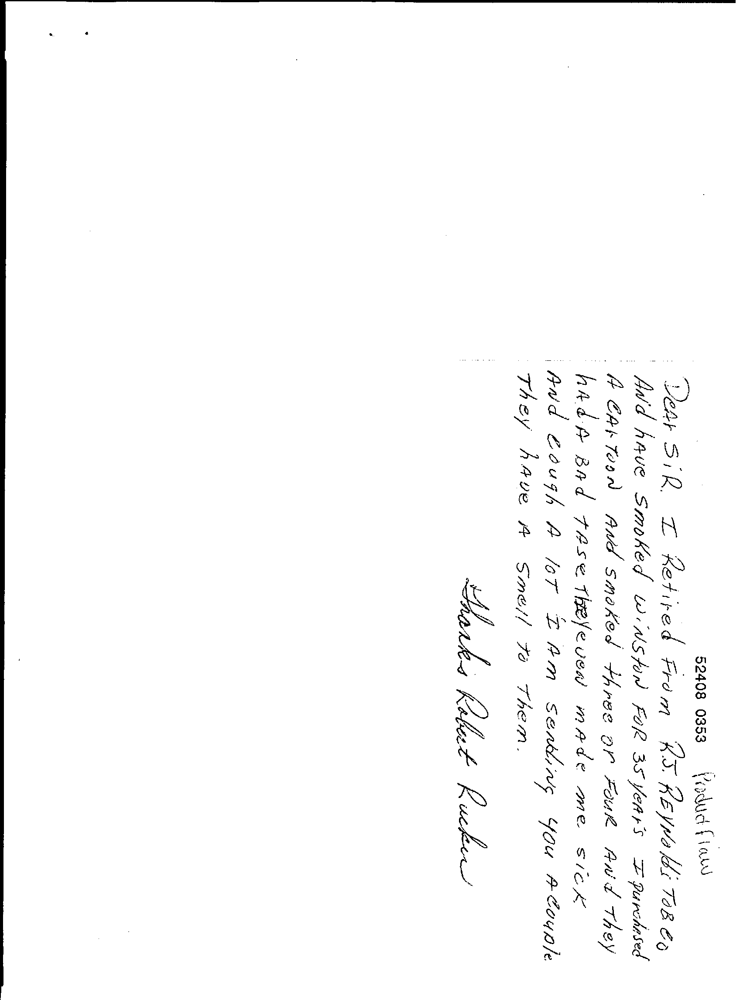 52408 0353
Product Flaw
Dear SiR. I Retired From R.J. REYNolds TOB CO
ANd hAve smoked WiNStoN FOR 35 yeArs I purchased
A CARTOON ANd smoked three or FOUR ANd They
hAd A BAd TAse They even mAde me sick
ANd cough A loT I Am sending you A Couple
They hAve A smell To Them.
Thanks Robert Rucker